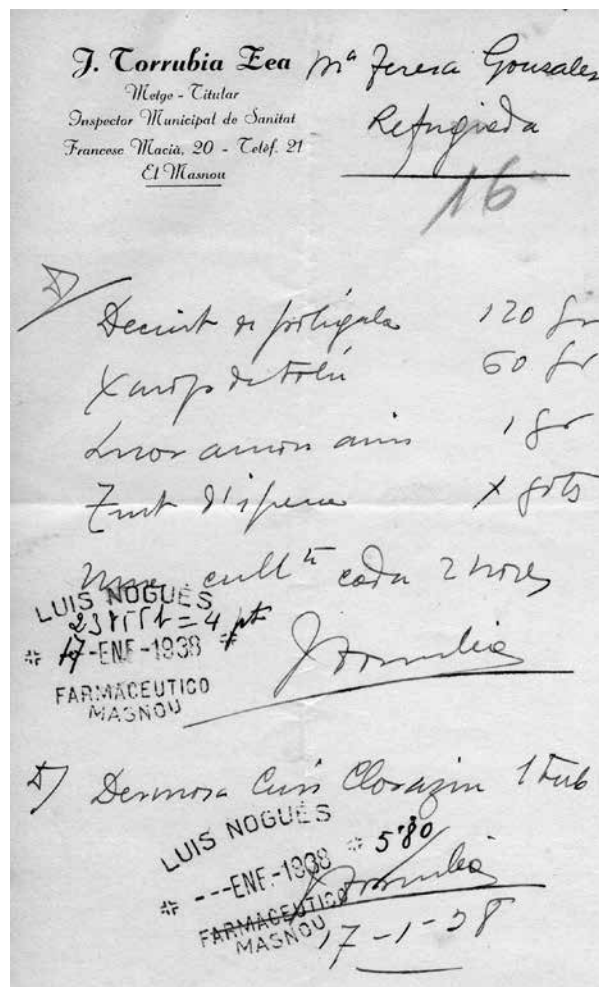 J. Torrubia Zea
Metge - Titular
Inspector Municipal de Sanitat
Francesc Macià, 20 - Telèf. 21
El Masnou
Mª Teresa Gonzales
Refugiada
16
Decuit de poligala 120 gr
Xarop de Tolú 60 gr
amon anis 1 gr
Tint d'ipeca X gots
cull cada 2 hores
LUIS NOGUÉS
= 4 pts
17-ENE-1938
FARMACEUTICO
MASNOU
J Torrubia
Dermosa Cusi Clorazin 1 tub
LUIS NOGUÉS
5'80
---ENE-1938
J Torrubia
FARMACEUTICO
MASNOU
17-1-38